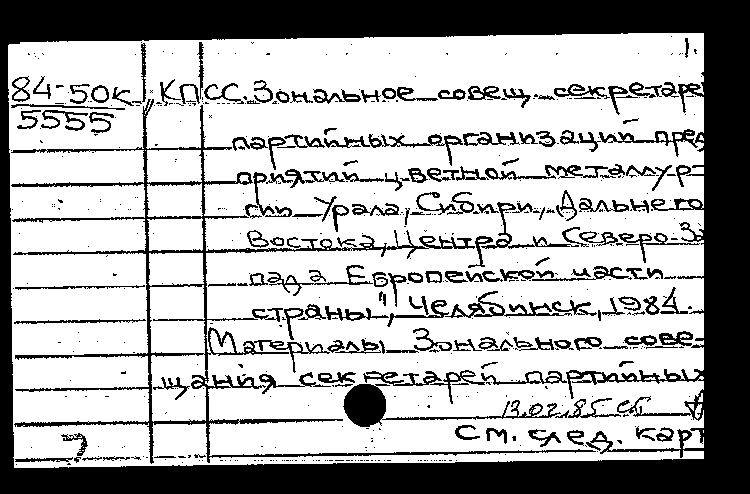 1.
84-50к „КПСС. Зональное совещ. секретарей
5555
партийных организаций пред
приятий цветной металлург-
гии Урала, Сибири, Дальнего
Востока, Центра и Северо-За
пада Европейской части
страны", Челябинск, 1984.
Материалы Зонального сове-
щания секретарей партийных
13.02.85 сб
См. след. карт
7